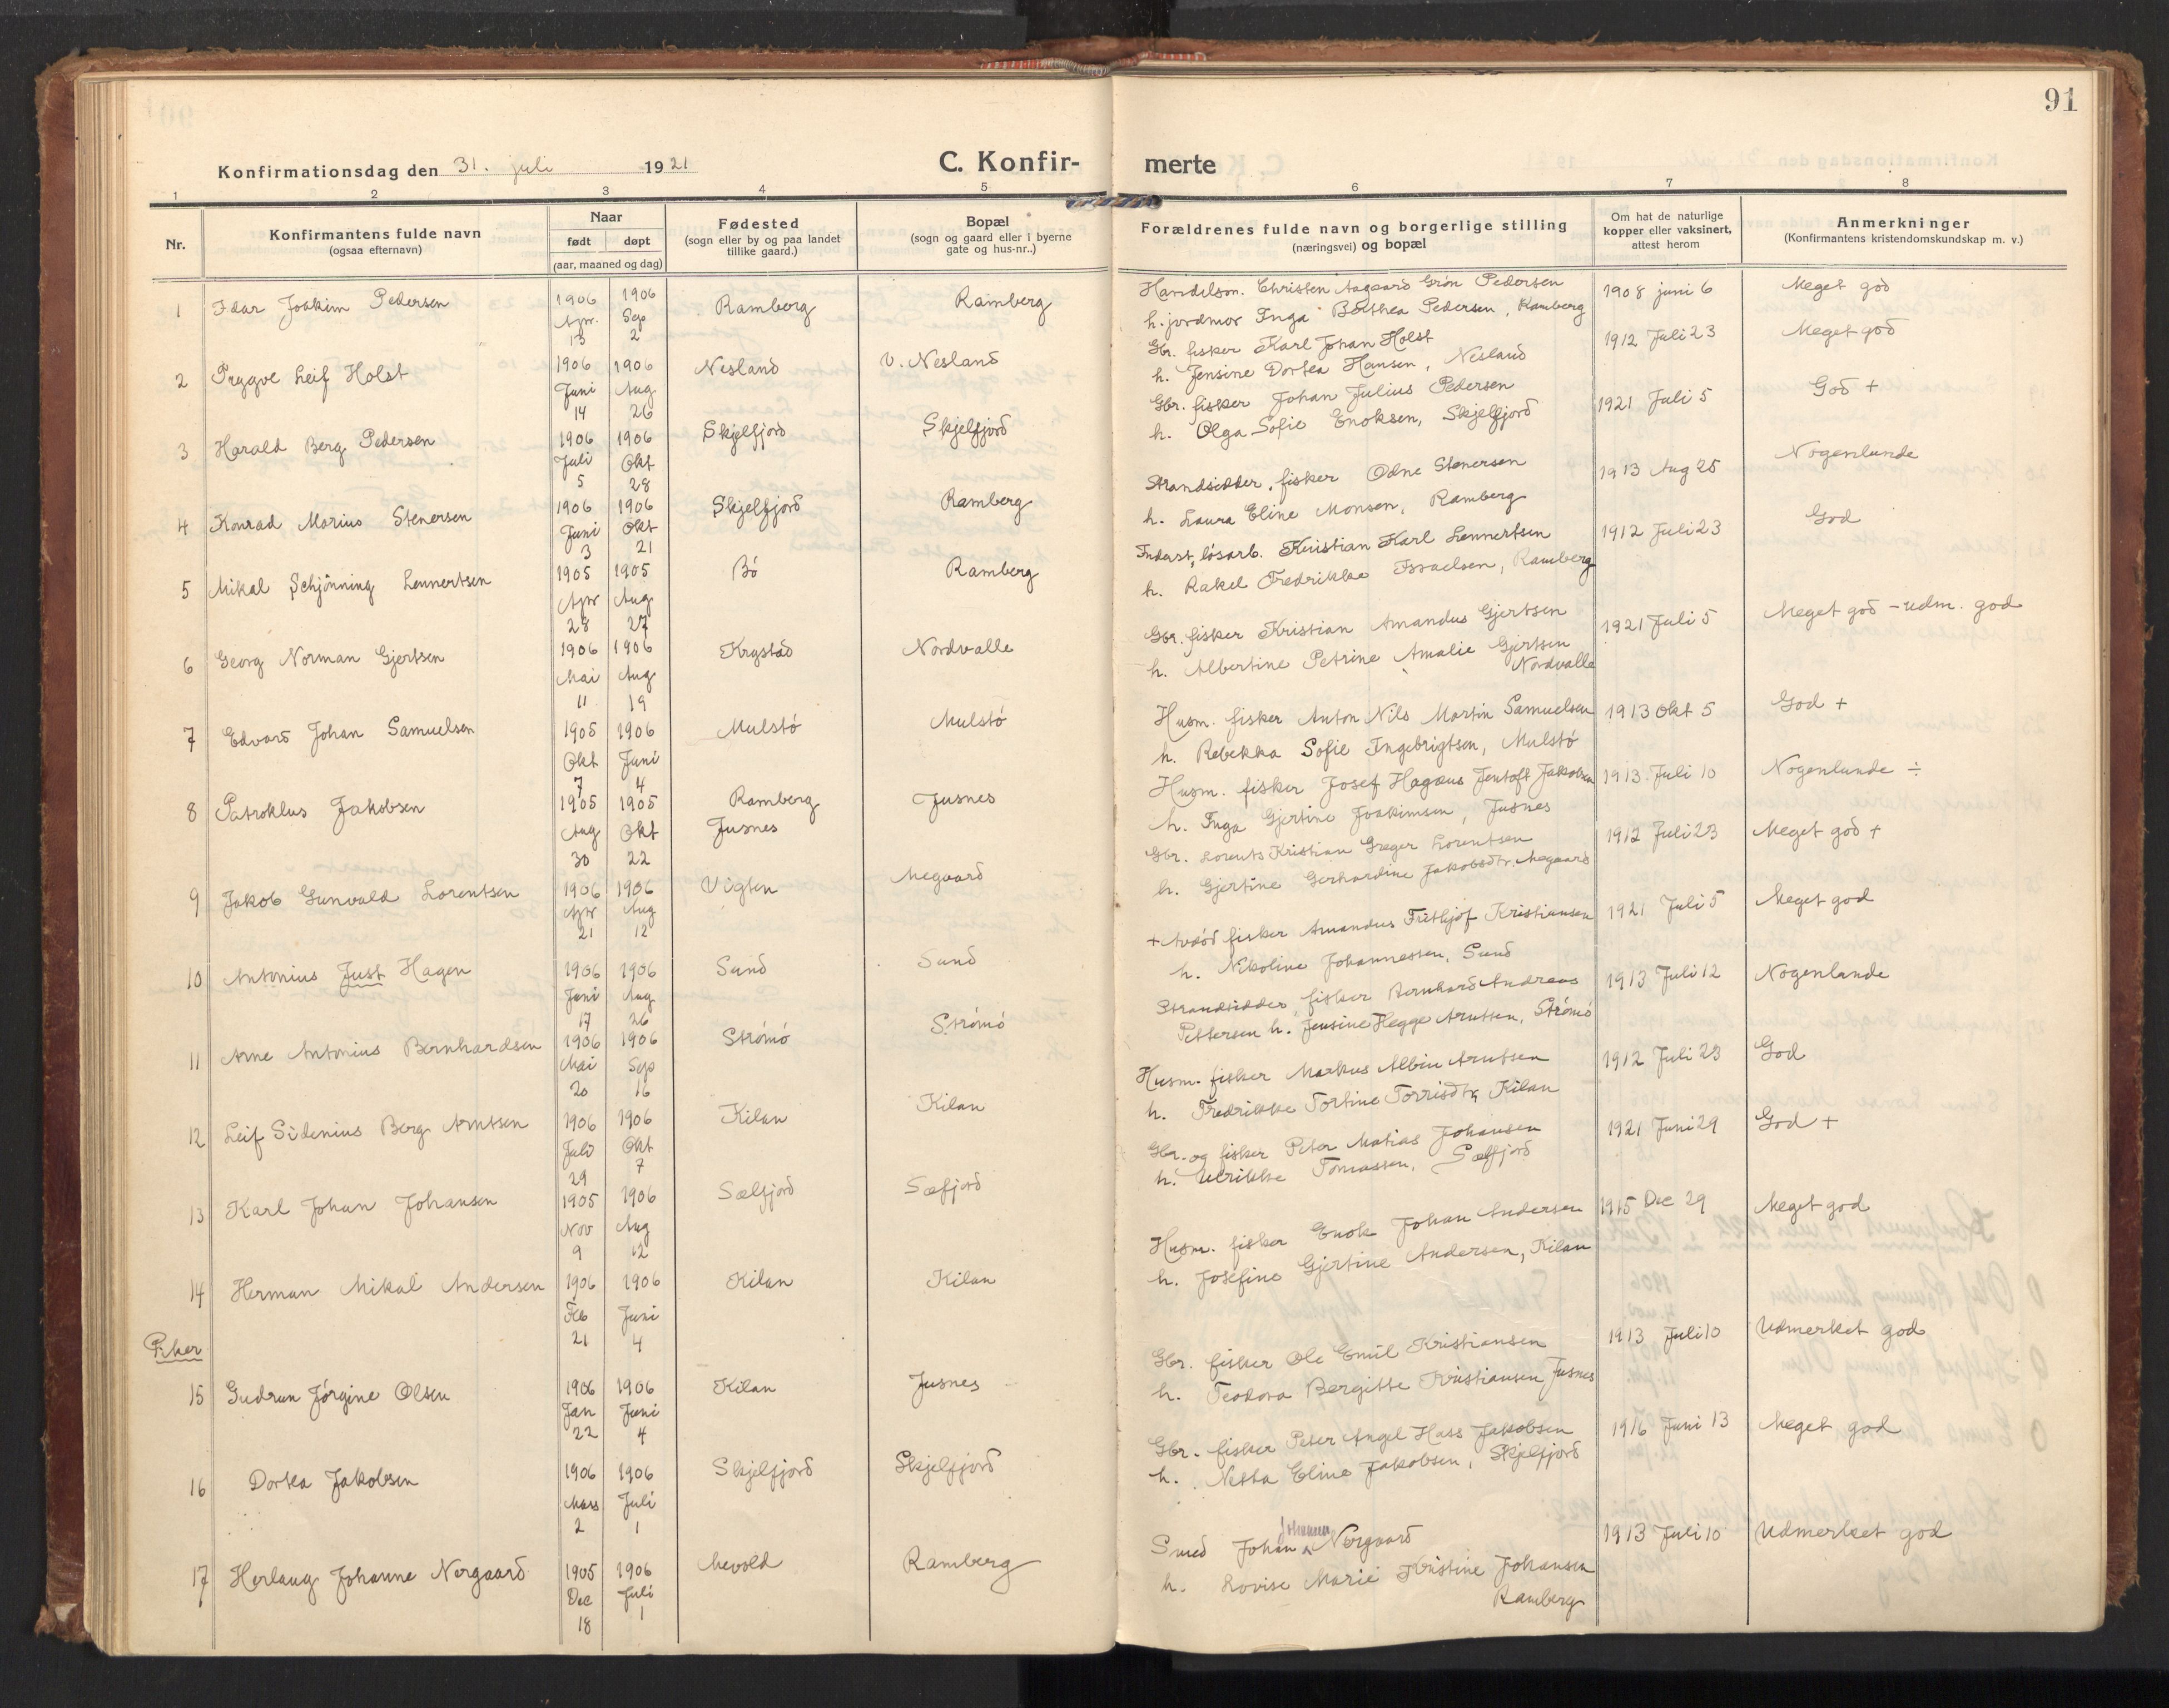 91
Konfirmationsdag den 31. juli 1921
C. Konfir-
merte
1 2 3 4 5 6 7 8
Nr.
Konfirmantens fulde navn
(ogsaa efternavn)
Naar
født døpt
(aar, maaned og dag)
Fødested
(sogn eller by og paa landet
tillike gaard.)
Bopæl
(sogn og gaard eller i byerne
gate og hus-nr..)
Forældrenes fulde navn og borgerlige stilling
(næringsvei) og bopæl
Om hat de naturlige
kopper eller vaksinert,
attest herom
Anmerkninger
(Konfirmantens kristendomskundskap m. v.)
1 Idar Joakim Pedersen 1906 Apr. 13 1906 Sep 2 Ramberg Ramberg
Handelsm. Christen Aagaard Grøn Pedersen 1908 juni 6 Meget god
h. jordmor Inga Berthea Pedersen, Ramberg
2 Trygve Leif Holst 1906 Juni 14 1906 Aug 26 Nesland V. Nesland
Gbr. fisker Karl Johan Holst 1912 Juli 23 Meget god
h. Jensine Dortea Hansen, Nesland
3 Harald Berg Pedersen 1906 Juli 5 1906 Okt 28 Skjelfjord Skjelfjord
Gbr. fisker Johan Julius Pedersen 1921 Juli 5 God +
h. Olga Sofie Enoksen, Skjelfjord
4 Konrad Marius Stenersen 1906 Juni 3 1906 Okt 21 Skjelfjord Ramberg
Strandsidder, fisker Odne Stenersen 1913 Aug 25 Nogenlunde
h. Laura Eline Monsen, Ramberg
5 Mikal Schjønning Lennertsen 1905 Apr 28 1905 Aug 27 Bø Ramberg
Inderst, løsarb. Kristian Karl Lennertsen 1912 Juli 23 God
h. Rakel Fredrikke Israelsen, Ramberg
6 Georg Norman Gjertsen 1906 Mai 11 1906 Aug 19 Krystad Nordvalle
Gbr. fisker Kristian Amandus Gjertsen 1921 Juli 5 Meget god - udm. god
h. Albertine Petrine Amalie Gjertsen
Nordvalle
7 Edvard Johan Samuelsen 1905 Okt 7 1906 Juni 4 Mulstø Mulstø
Husm. fisker Anton Nils Martin Samuelsen 1913 Okt 5 God +
h. Rebekka Sofie Ingebrigtsen, Mulstø
8 Patroklus Jakobsen 1905 Aug 30 1905 Okt 22 Ramberg Jusnes Jusnes
Husm. fisker Josef Hagæus Jentoft Jakobsen 1913. Juli 10 Nogenlunde ÷
h. Inga Gjertine Joakimsen, Jusnes
9 Jakob Gunvald Lorentsen 1906 Apr 21 1906 Aug 12 Vigten Megaard
Gbr. Lorents Kristian Greger Lorentsen 1912 Juli 23 Meget god +
h. Gjertine Gerhardine Jakobsdtr. Megaard
10 Antonius Just Hagen 1906 Juni 17 1906 Aug 26 Sund Sund
+ Avdød fisker Amandus Frithjof Kristiansen 1921 Juli 5 Meget god
h. Nikoline Johannessen, Sund
11 Arne Antonius Bernhardsen 1906 Mai 20 1906 Sep 16 Strømø Strømø
Strandsidder, fisker Bernhard Andreas 1913 Juli 12 Nogenlunde
Pettersen h. Jensine Hegge Arntsen, Strømø
12 Leif Sidenius Berg Arntsen 1906 Juli 29 1906 Okt 7 Kilan Kilan
Husm. fisker Markus Albin Arntsen 1912 Juli 23 God
h. Fredrikke Tortine Torrisdtr, Kilan
13 Karl Johan Johansen 1905 Nov 9 1906 Aug 12 Sælfjord Sæfjord
Gbr. og fisker Peter Matias Johansen 1921 Juni 29 God +
h. Ulrikke Tomassen, Sælfjord
14 Herman Mikal Andersen 1906 Feb 21 1906 Juni 4 Kilan Kilan
Husm. fisker Enok Johan Andersen 1915 Dec 29 Meget god
h. Josefine Gjertine Andersen, Kilan
Piker
15 Gudrun Jørgine Olsen 1906 Jan 22 1906 Juni 4 Kilan Jusnes
Gbr. fisker Ole Emil Kristiansen 1913 Juli 10 Udmerket god
h. Teodora Bergitte Kristiansen Jusnes
16 Dortea Jakobsen 1906 Mars 2 1906 Juli 1 Skjelfjord Skjelfjord
Gbr. fisker Peter Angel Hass Jakobsen 1916 Juni 13 Meget god
h. Netta Eline Jakobsen, Skjelfjord
17 Herlaug Johanne Nergaard 1905 Dec 18 1906 Juli 1 Mevold Ramberg
Smed Johan Johannes Nergaard 1913 Juli 10 Udmerket god
h. Lovise Marie Kristine Johansen
Ramberg